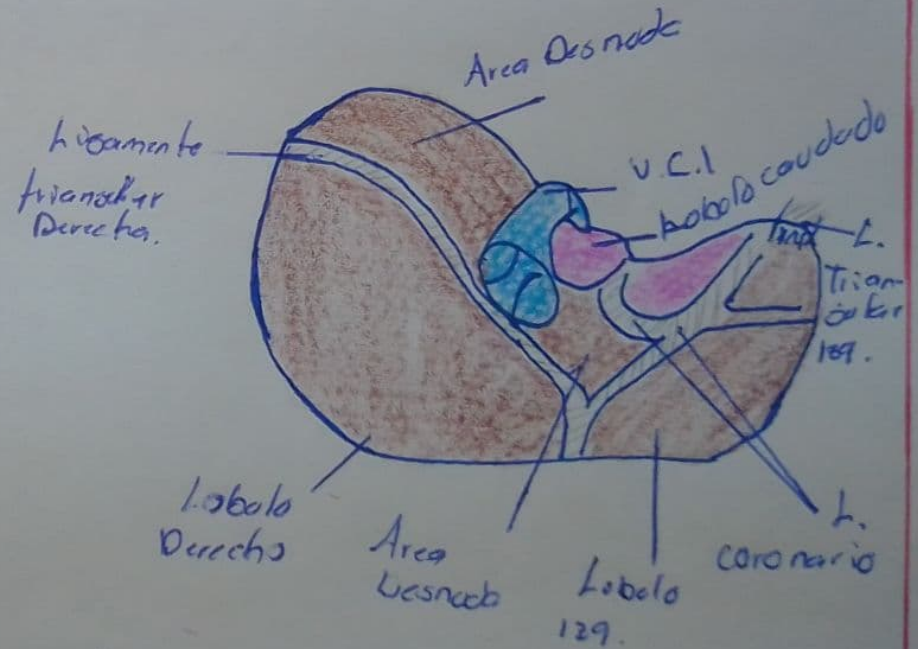 Area Desnuda
Ligamento
triangular
Derecha.
V.C.I
Lobolo caudado
L.
Trian-
gular
Izq.
Lobolo
Derecho
Area
Desnuda
Lobolo
Izq.
L.
coronario